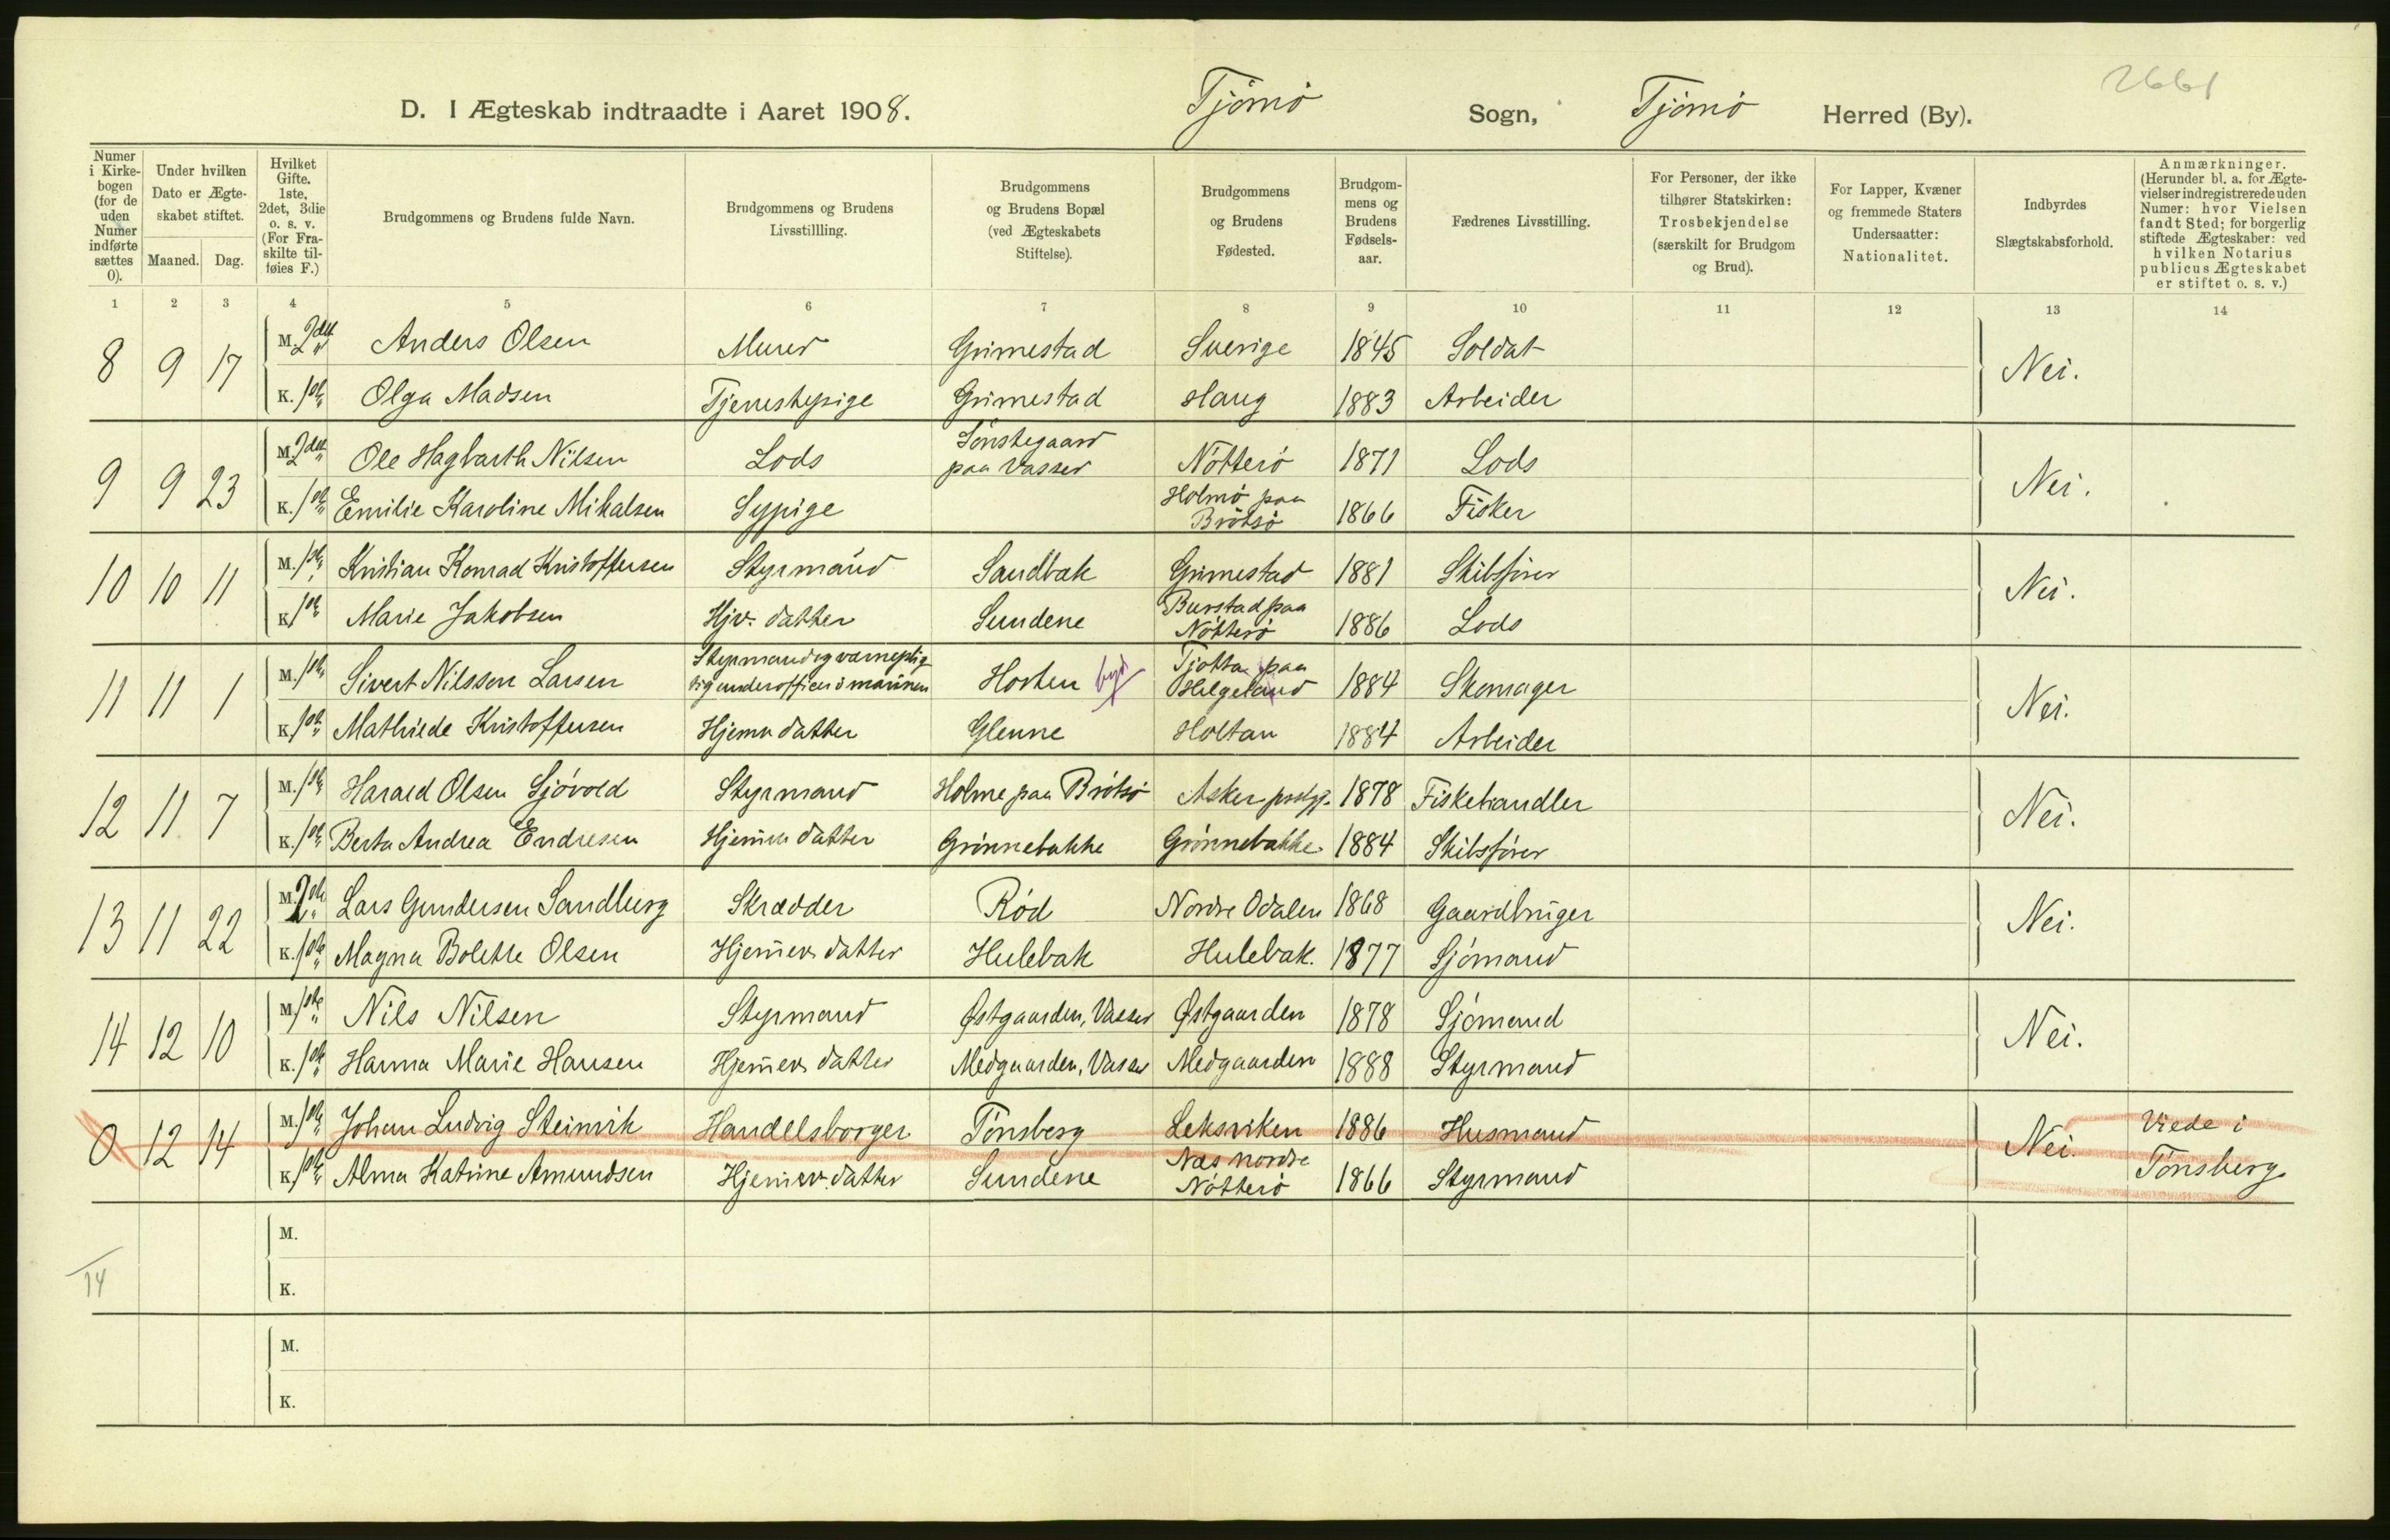 2661
D. I Ægteskab indtraadte i Aaret 1908. Tjømø Sogn, Tjømø Herred (By).
Numer i Kirkebogen (for de uden Numer indførte sættes 0).
Under hvilken Dato er Ægteskabet stiftet.
Maaned. Dag.
Hvilket Gifte. 1ste, 2det, 3die o. s. v. (For Fraskilte tilføies F.)
Brudgommens og Brudens fulde Navn.
Brudgommens og Brudens Livsstillling.
Brudgommens og Brudens Bopæl (ved Ægteskabets Stiftelse).
Brudgommens og Brudens Fødested.
Brudgommens og Brudens Fødselsaar.
Fædrenes Livsstilling.
For Personer, der ikke tilhører Statskirken: Trosbekjendelse (særskilt for Brudgom og Brud).
For Lapper, Kvæner og fremmede Staters Undersaatter: Nationalitet.
Indbyrdes Slægtskabsforhold.
Anmærkninger. (Herunder bl. a. for Ægtevielser indregistrerede uden Numer: hvor Vielsen fandt Sted; for borgerlig stiftede Ægteskaber: ved hvilken Notarius publicus Ægteskabet er stiftet o. s. v.)
1 2 3 4 5 6 7 8 9 10 11 12 13 14
8 9 17 M. 2det Anders Olsen Murer Grimestad Sverige 1845 Soldat Nei.
K. 1ste Olga Madsen Tjenestepige Grimestad Haug 1883 Arbeider
9 9 23 M. 2det Ole Hagbarth Nilsen Lods Sønstegaard paa Vasser Nøtterø 1871 Lods Nei.
K. 1ste Emilie Karoline Mikalsen Sypige Holmø paa Brøtsø 1866 Fisker
10 10 11 M. 1ste Kristian Konrad Kristoffersen Styrmand Sandbæk Grimestad 1881 Skibsfører Nei.
K. 1ste Marie Jakobsen Hjv. datter Sundene Burstad paa Nøtterø 1886 Lods
11 11 1 M. 1ste Sivert Nilsson Larsen Styrmand og værnepligtig underofficer i marinen Horten by Tjøtta paa Helgeland 1884 Skomager Nei.
K. 1ste Mathilde Kristoffersen Hjemv datter Glenne Holtan 1884 Arbeider
12 11 7 M. 1ste Harald Olsen Sjøvold Styrmand Holme paa Brøtsø Asker prstgj. 1878 Fiskehandler Nei.
K. 1ste Berta Andrea Endresen Hjemv datter Grønnebakke Grønnebakke 1884 Skibsfører
13 11 22 M. 2de Lars Gundersen Sandberg Skrædder Rød Nordre Odalen 1868 Gaardbruger Nei.
K. 1ste Magna Bolette Olsen Hjemev. datter Hulebak Hulebak. 1877 Sjømand
14 12 10 M. 1ste Nils Nilsen Styrmand Østgaarden, Vasser Østgaarden 1878 Sjømand Nei.
K. 1ste Hanna Marie Hansen Hjemev. datter Medgaarden, Vasser Medgaarden 1888 Styrmand
0 12 14 M. 1ste Johan Ludvig Steinvik Handelsborger Tønsberg Leksviken 1886 Husmand Nei. Viede i
K. 1ste Alma Katrine Amundsen Hjemev. datter Sundene Næs nordre Nøtterø 1866 Styrmand Tønsberg
M.
14
K.
M.
K.